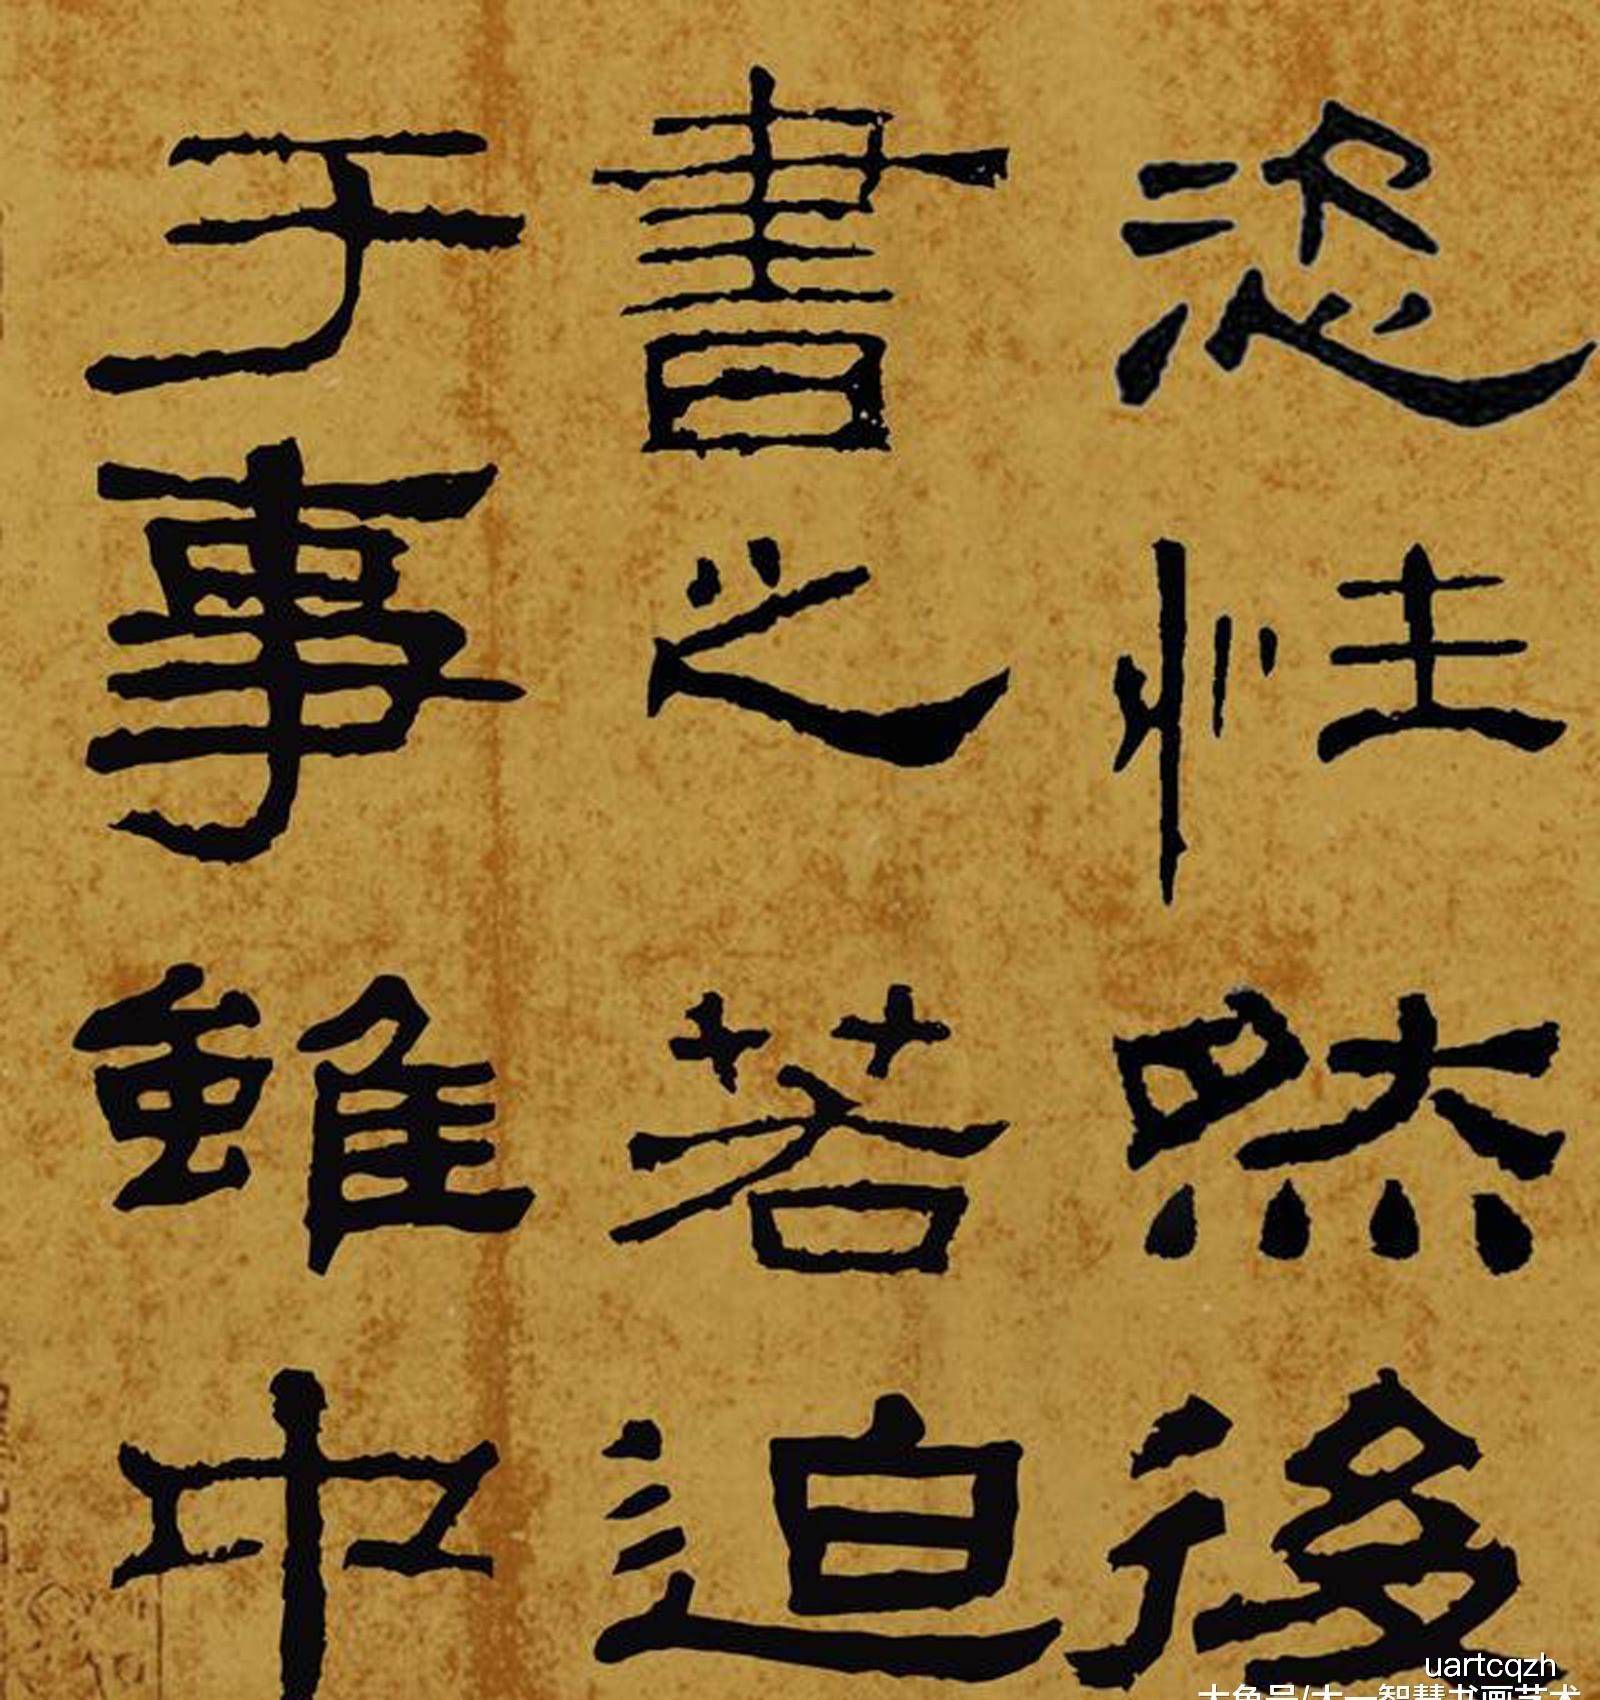 恣性然後
書之若迫
于事雖中
uartcqzh
大鱼号/大一智慧书画艺术